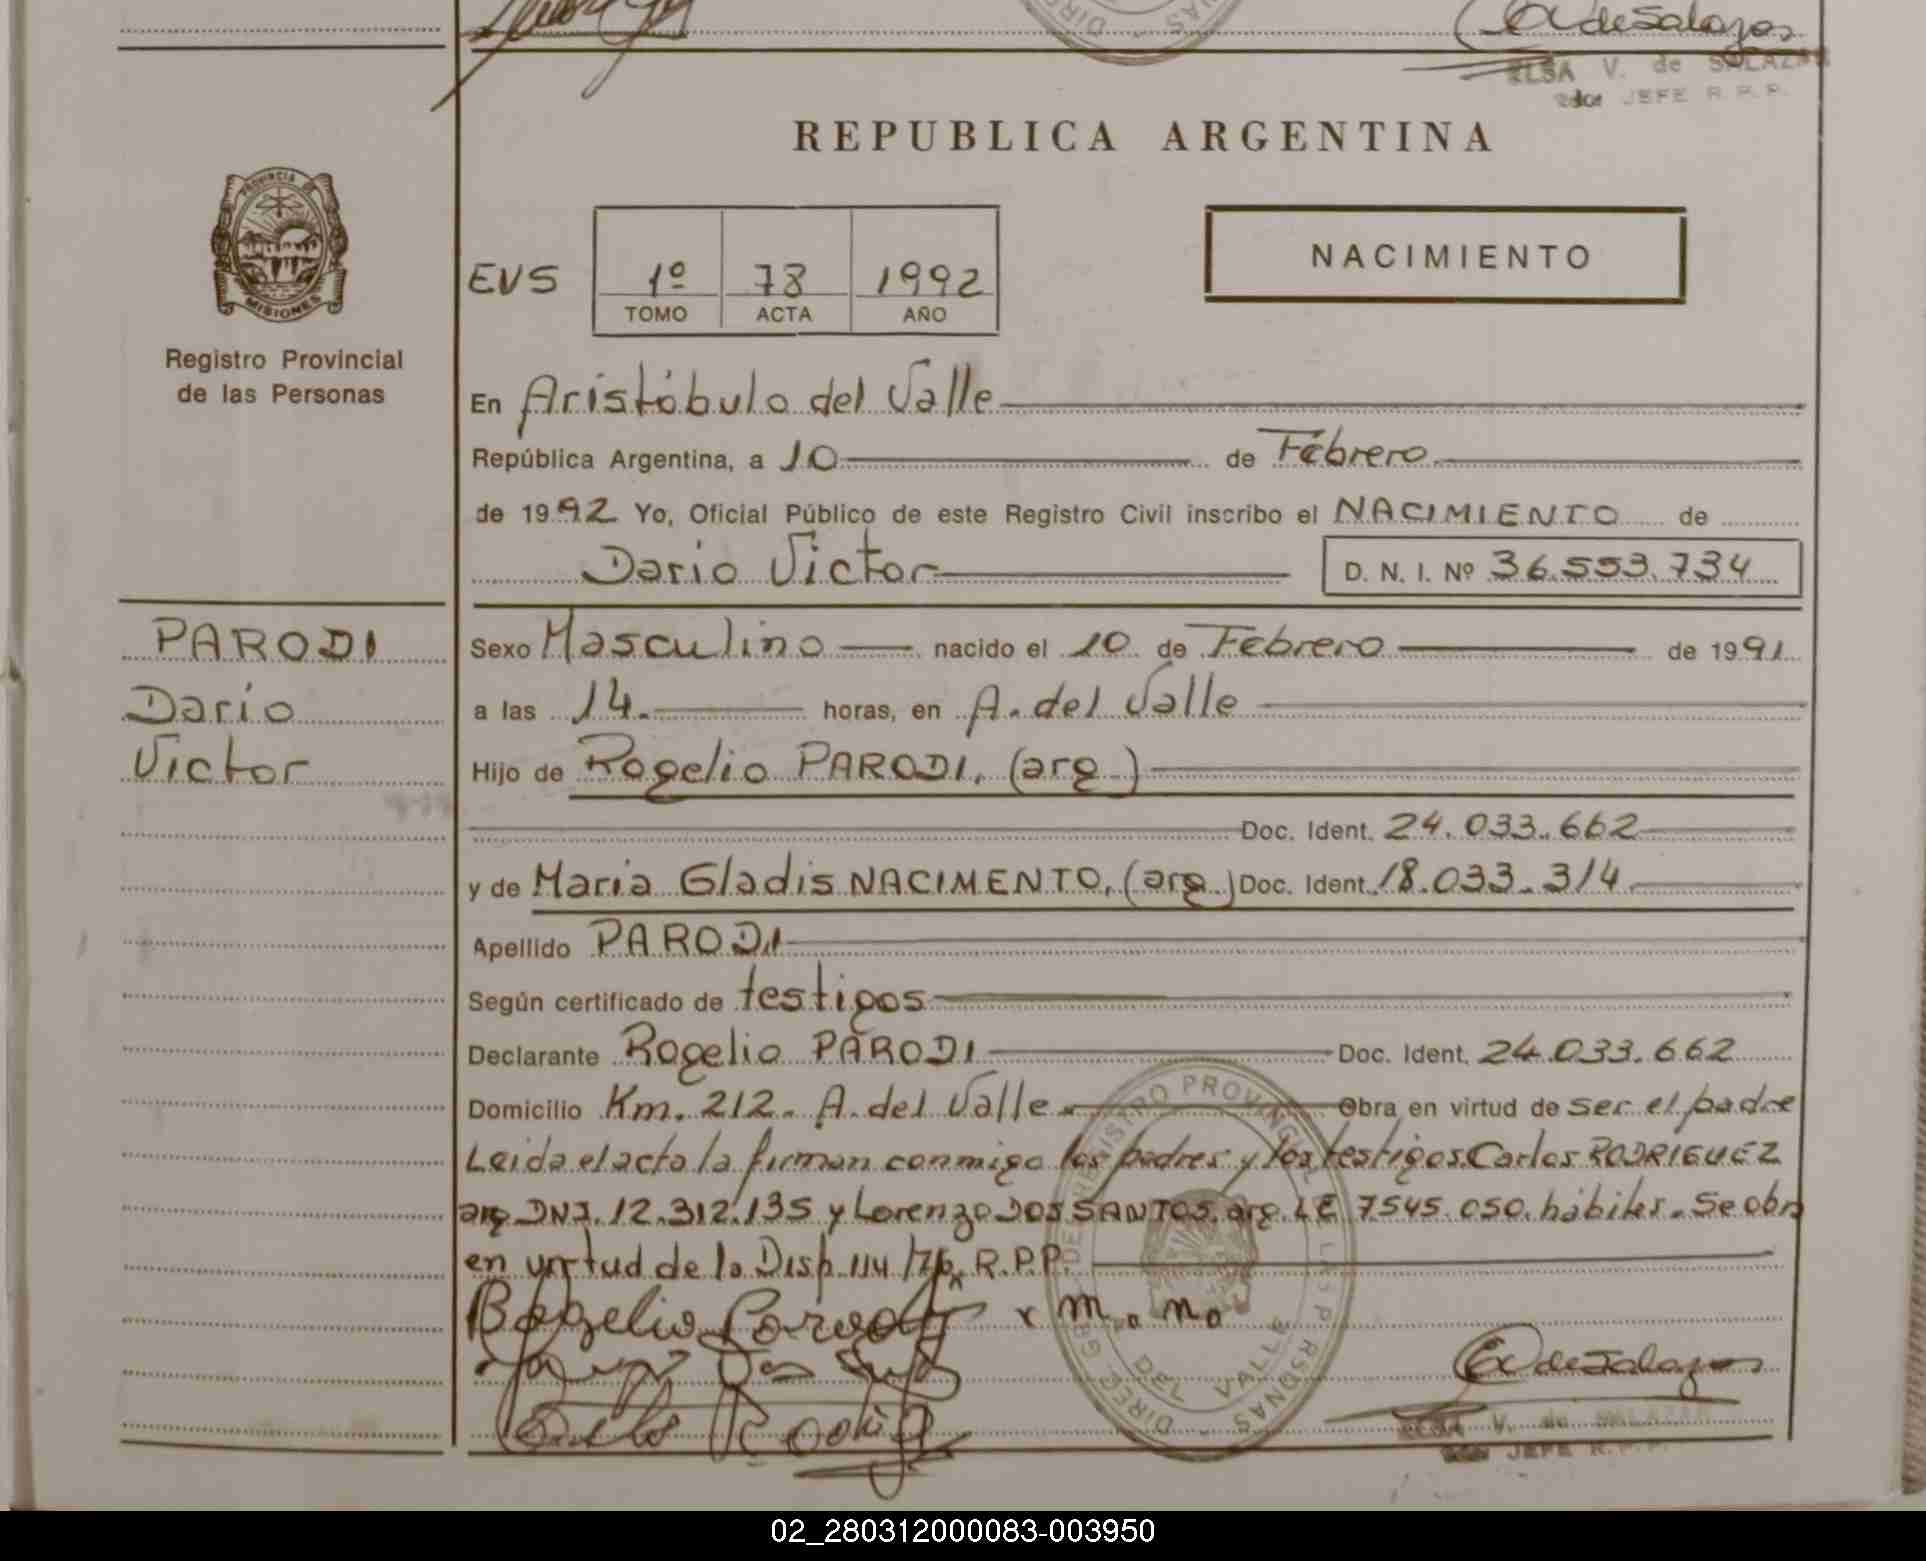 deSalazar
ELSA V. de SALAZAR
2do JEFE R. P. P.
REPUBLICA ARGENTINA
PROVINCIA DE
MISIONES
Registro Provincial
de las Personas
EVS 1º 78 1992
TOMO ACTA AÑO
NACIMIENTO
En Aristóbulo del Valle
República Argentina, a 10 de Febrero
de 1992 Yo, Oficial Público de este Registro Civil inscribo el NACIMIENTO de
Dario Victor D. N. I. Nº 36.553.734
PARODI
Dario
Victor
Sexo Masculino nacido el 10 de Febrero de 1991
a las 14. horas, en A. del Valle
Hijo de Rogelio PARODI, (arg.)
Doc. Ident. 24.033.662
y de Maria Gladis NACIMENTO, (arg.) Doc. Ident. 18.033.314
Apellido PARODI
Según certificado de testigos
Declarante Rogelio PARODI Doc. Ident. 24.033.662
Domicilio Km. 212. A. del Valle Obra en virtud de ser el padre
Leida el acta la firman conmigo los padres y los testigos Carlos RODRIGUEZ
arg DNI. 12.312.135 y Lorenzo DOS SANTOS, arg. LE 7545.050. hábiles. Se obra
en virtud de la Disp 114/76 R.P.P.
Rogelio Parodi x m. no
deSalazar
V. de SALAZAR
JEFE R. P. P.
DEL VALLE
02_280312000083-003950